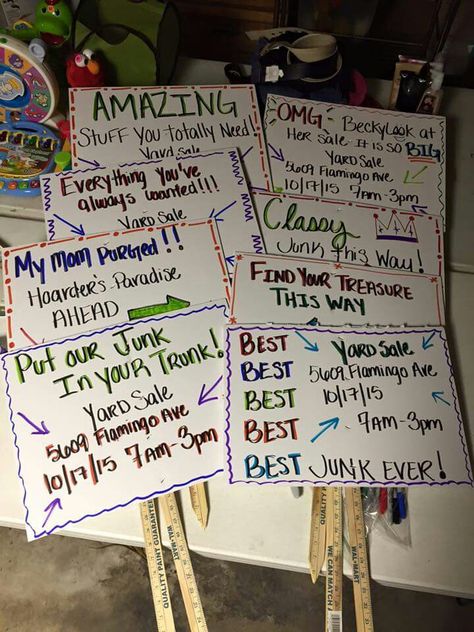 AMAZING
STUFF YOU TOTALLY NEED!
Yard Sale
OMG - Becky Look at
Her Sale. It is so BIG
YARD SALE
5609 Flamingo Ave
10/17/15 7AM-3PM
Everything You've
always wanted!!!
YARD SALE
Classy
JUNK THIS WAY!
My Mom Purged!!
Hoarder's-Paradise
AHEAD
FIND YOUR TREASURE
THIS WAY
Put our Junk
In Your Trunk!
YARD SALE
5609 Flamingo Ave
10/17/15 7AM-3pm
BEST YARD SALE
BEST 5609 Flamingo Ave
BEST 10/17/15
BEST 7AM-3pm
BEST JUNK EVER!
QUALITY PAINT
WAL-MART
QUALITY
WE CAN MATCH
WAL-MART